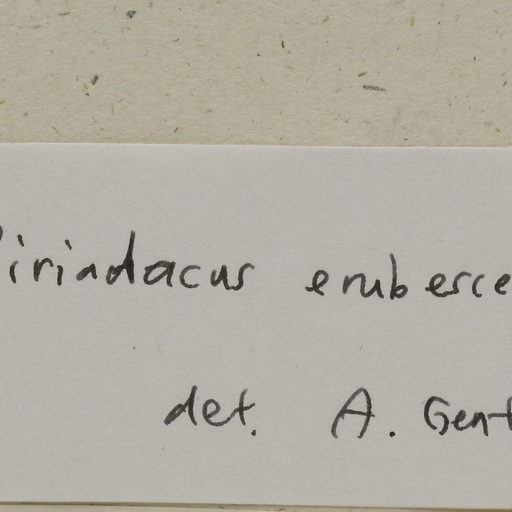 Piriadacus erubesce
det. A. Gent